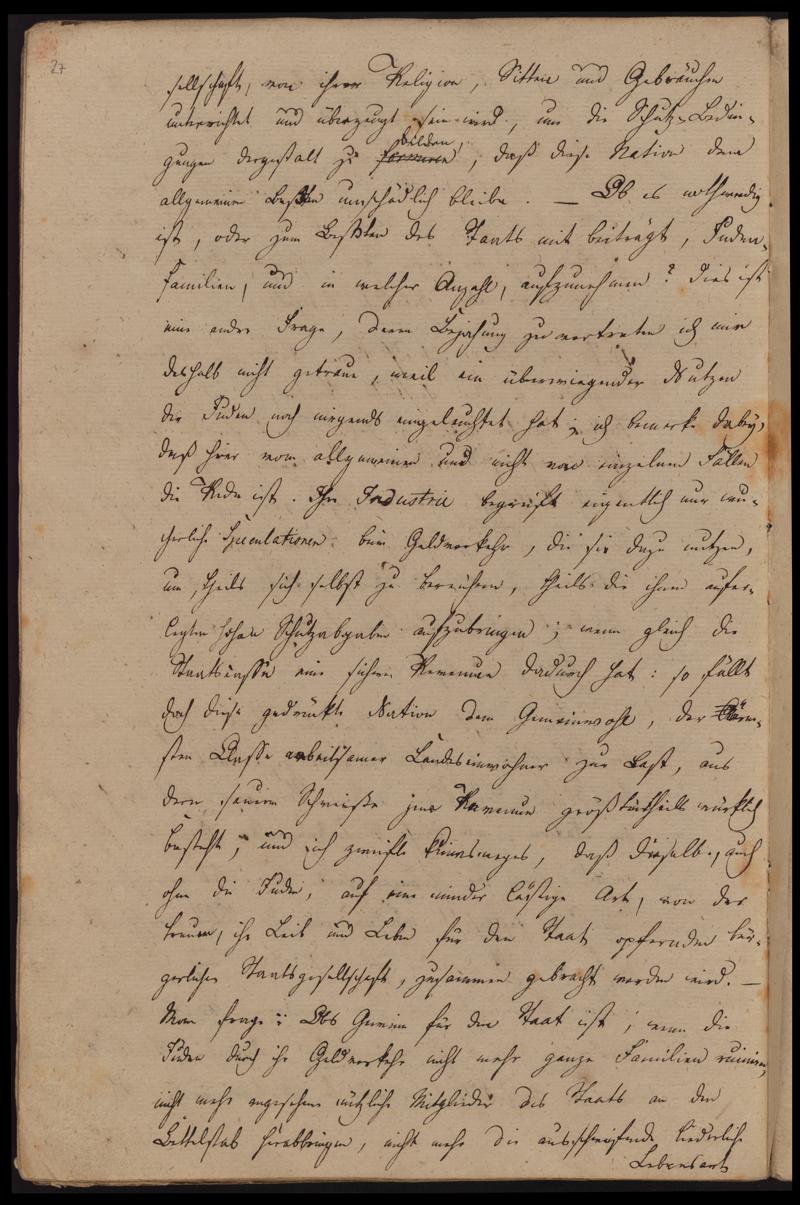 27
sellschaft, von ihrer Religion, Sitten und Gebräuchen
unterrichtet und überzeugt sein wird, um die Schutz-Bedin-
bilden,
gungen dergestalt zu formiren, daß diese Nation dem
allgemeinen Besten unschädlich bleibe. — Ob es nothwendig
ist, oder zum Besten des Staats mit beiträgt, Juden-
Familien, und in welcher Anzahl, aufzunehmen? Dies ist
eine andre Frage, deren Bejahung zu vertreten ich mir
deshalb nicht getraue, weil ein überwiegender Nutzen
der Juden noch nirgends eingeleuchtet hat; ich bemerke dabey,
daß hier vom allgemeinen und nicht von einzelnen Fällen
die Rede ist. Ihre Industrie begreift eigentlich nur wu-
cherliche Speculationen beim Geldverkehr, die sie dazu nutzen,
um, theils sich selbst zu bereichern, theils die ihnen aufer-
legten hohen Schutzabgaben aufzubringen; wenn gleich die
Staatscasse eine sichere Revenue dadurch hat: so fällt
doch diese gedrückte Nation dem Gemeinwohl, der ärm-
sten Classe arbeitsamer Landeseinwohner zur Last, aus
deren sauren Schweiße jene Revenue größtentheils würklich
besteht, und ich zweifle keinesweges, daß dieselbe, auch
ohne die Juden, auf eine minder lästige Art, von der
treuen, ihr Leib und Leben für den Staat opfernden bür-
gerlichen Staatsgesellschaft, zusammen gebracht werden wird. —
Man frage: Obs Gewinn für den Staat ist, wenn die
Juden durch ihr Geldverkehr nicht mehr ganze Familien ruiniren,
nicht mehr angesehene nützliche Mitglieder des Staats an den
Bettelstab herabbringen, nicht mehr die ausschweifende liederliche
Lebensart